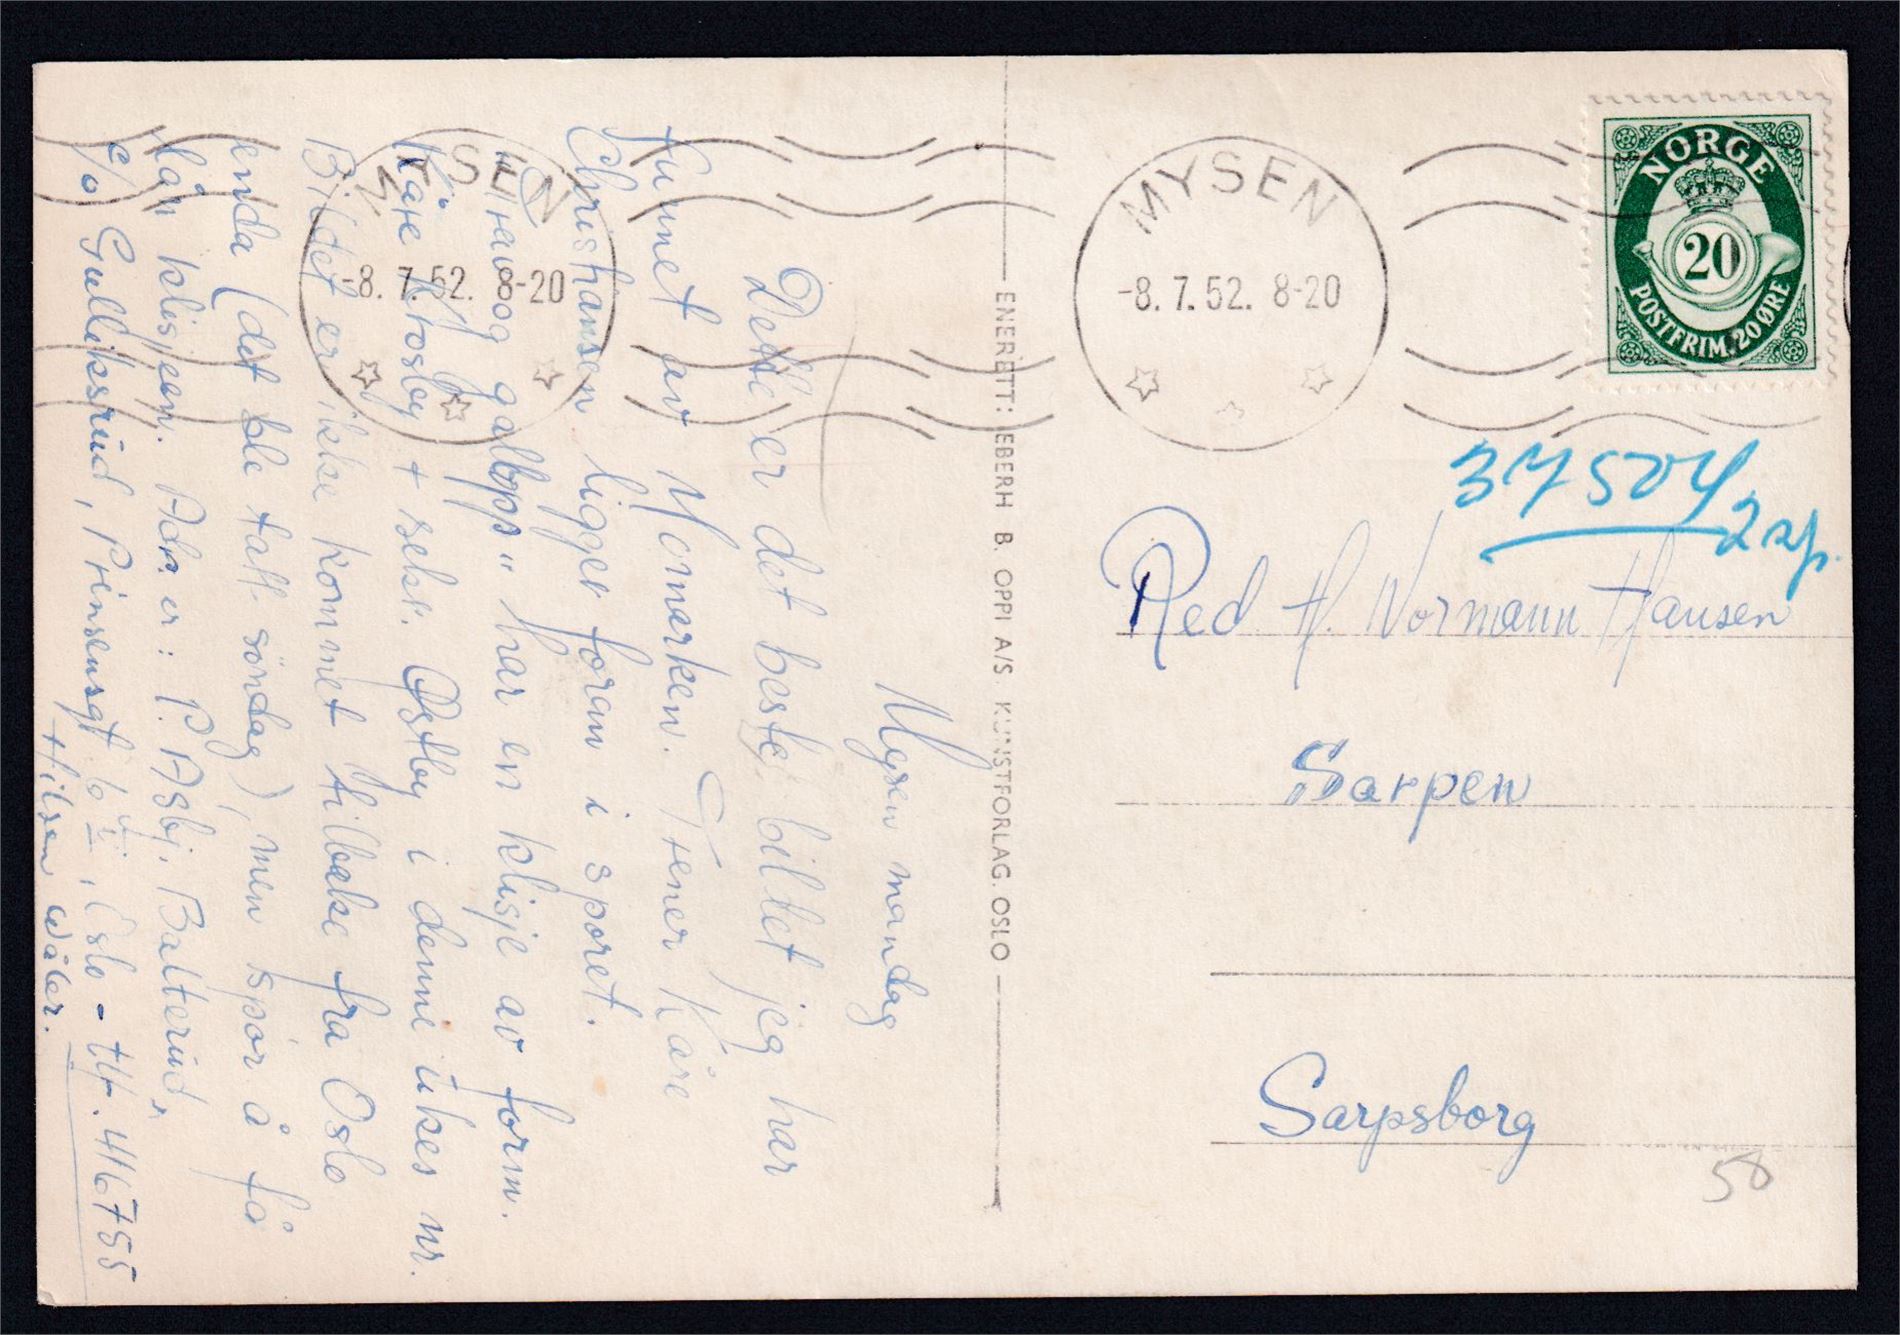 Mysen mandag
Dette er det beste billet jeg har
funnet av Momarken. Trener Kåre
Christiansen ligger foran i sporet.
"Trav og galopp" har en klisje av form.
Kåre Krosby + sekr. Østby i denne ukes nr.
Bildet er ikke kommet tilbake fra Oslo
enda (det ble tatt söndag), men spør å få
lån klisjeen. Adr. er: P. Asbj. Balterud,
c/o Gulliksrud, Prinsensgt 6, Oslo - tlf. 416755
Hilsen Wäler.
MYSEN
-8.7.52. 8-20
ENERETT: EBERH B. OPPI A/S. KUNSTFORLAG. OSLO
MYSEN
-8.7.52. 8-20
NORGE
20
POSTFRIM. 20 ØRE
37504
2 sp.
Red H. Normann Hansen
Sarpen
Sarpsborg
58